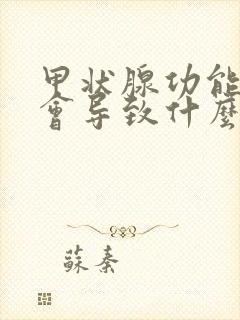 甲状腺功能
會导致什麼
蘇秦